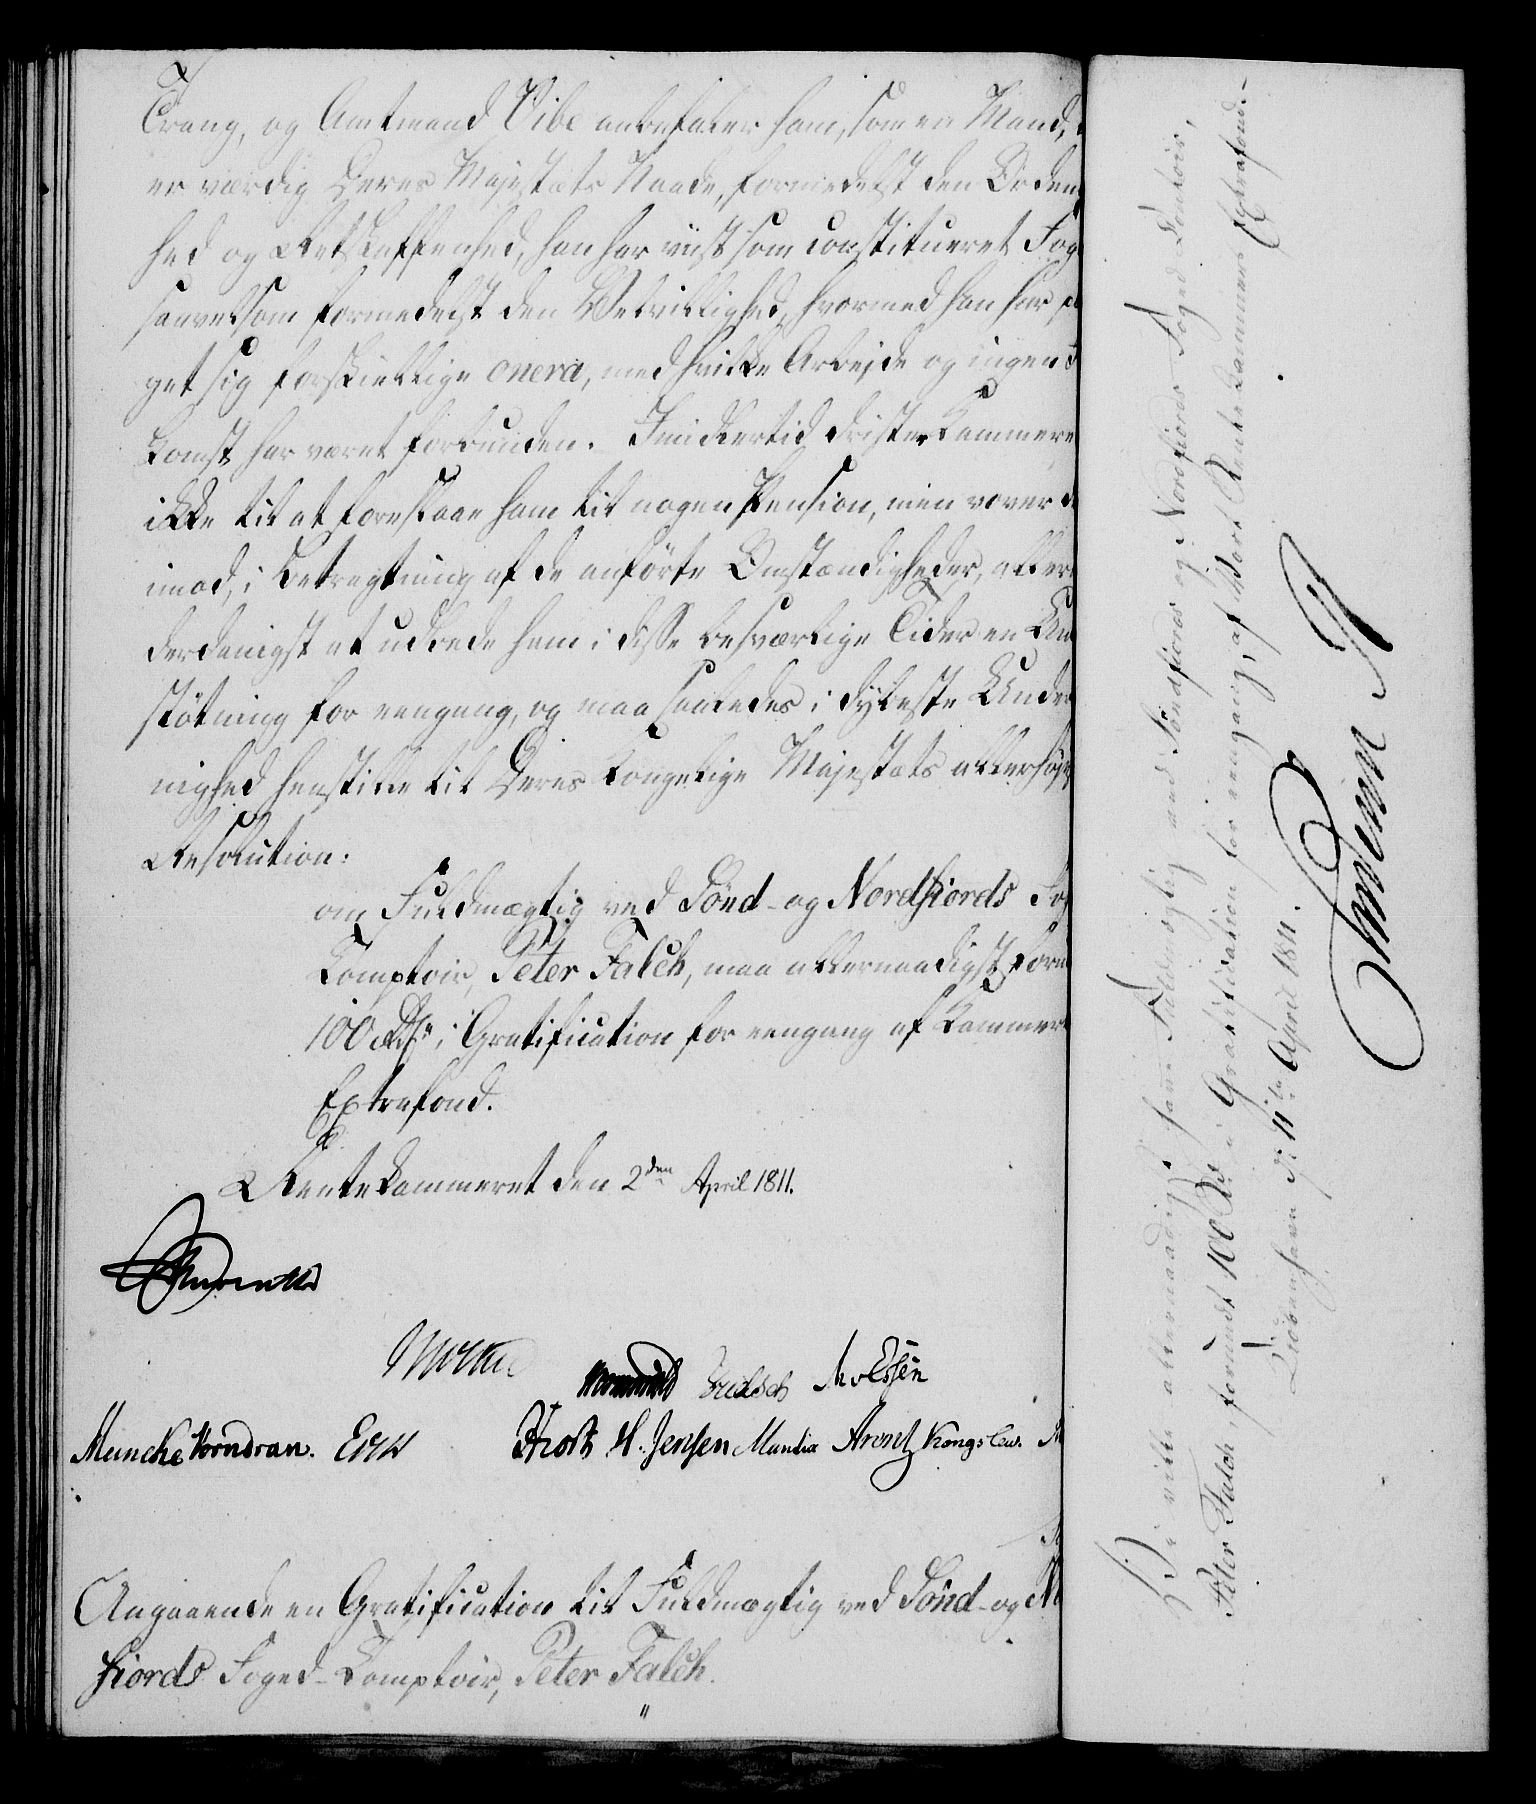 Trang, og Amtmand Vibe anbefaler ham, som en Mand,
er værdig Deres Majestæts Naade, formedelst den Orden
hed og Retskaffenhed, han har viist som constitueret Fog
saavelsom formedelst den Velvillighed, hvormed han har p
get sig forskiellige onera, med hvilke Arbejde og ingen
komst har været forbunden. Imidlertid drister Kammere
ikke til at foreslaae ham til nogen Pension, men vover d
imod, i Betragtning af de anførte Omstændigheder, aller
derdanigst at udbede ham i disse besværlige Tider en Un
støtning for eengang, og maa saaledes i dybeste Under
nighed henstille til Deres Kongelige Majestæts allerhøj
Resolution:
om Fuldmægtig ved Sönd- og Nordfiords Fog
Comptoir, Peter Falch, maa allernaadigst forun
100 Rdr i Gratification for eengang af Kammer
Extrafond.
Rentekammeret den 2den April 1811.
Knuth
Wormskiold Fridsch MvEssen
Muncke Korndran. Frost H. Jensen Manthe Arentz Kongslew.
Angaaende en Gratification til Fuldmægtig ved Sönd- og N
fiords Foged-Comptoir, Peter Falch.
"
Vi ville allernaadigst have Fuldmægtig ved Söndfiords og Nordfiords Foged Contoir,
Peter Falch forundt 100 Rdr i Gratification for eengang, af Vort Rentekammers Extrafond.
Kiöbenhavn d: 11te April 1811.
Frederik R